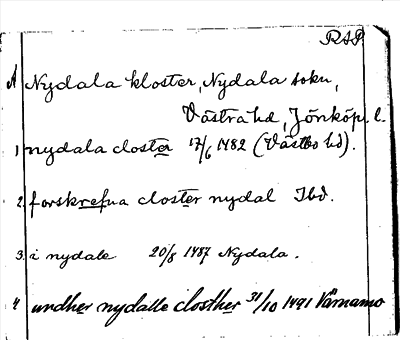 RAP.
A Nydala kloster, Nydala sokn,
Västra hd, Jönköp. l.
1, nydala closter 17/6 1482 (Västbo hd).
2. forskrefna closter nydal Ibd.
3. i nydale 20/8 1487 Nydala.
4 undher nydalle closther 31/10 1491 Värnamo